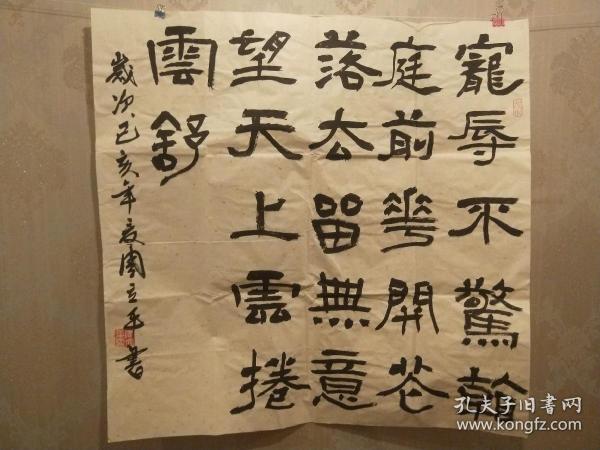 寵辱不驚看
庭前華開花
落去留無意
望天上雲捲
雲舒
歲次己亥年夏周立平書
孔夫子旧書网
www.kongfz.com